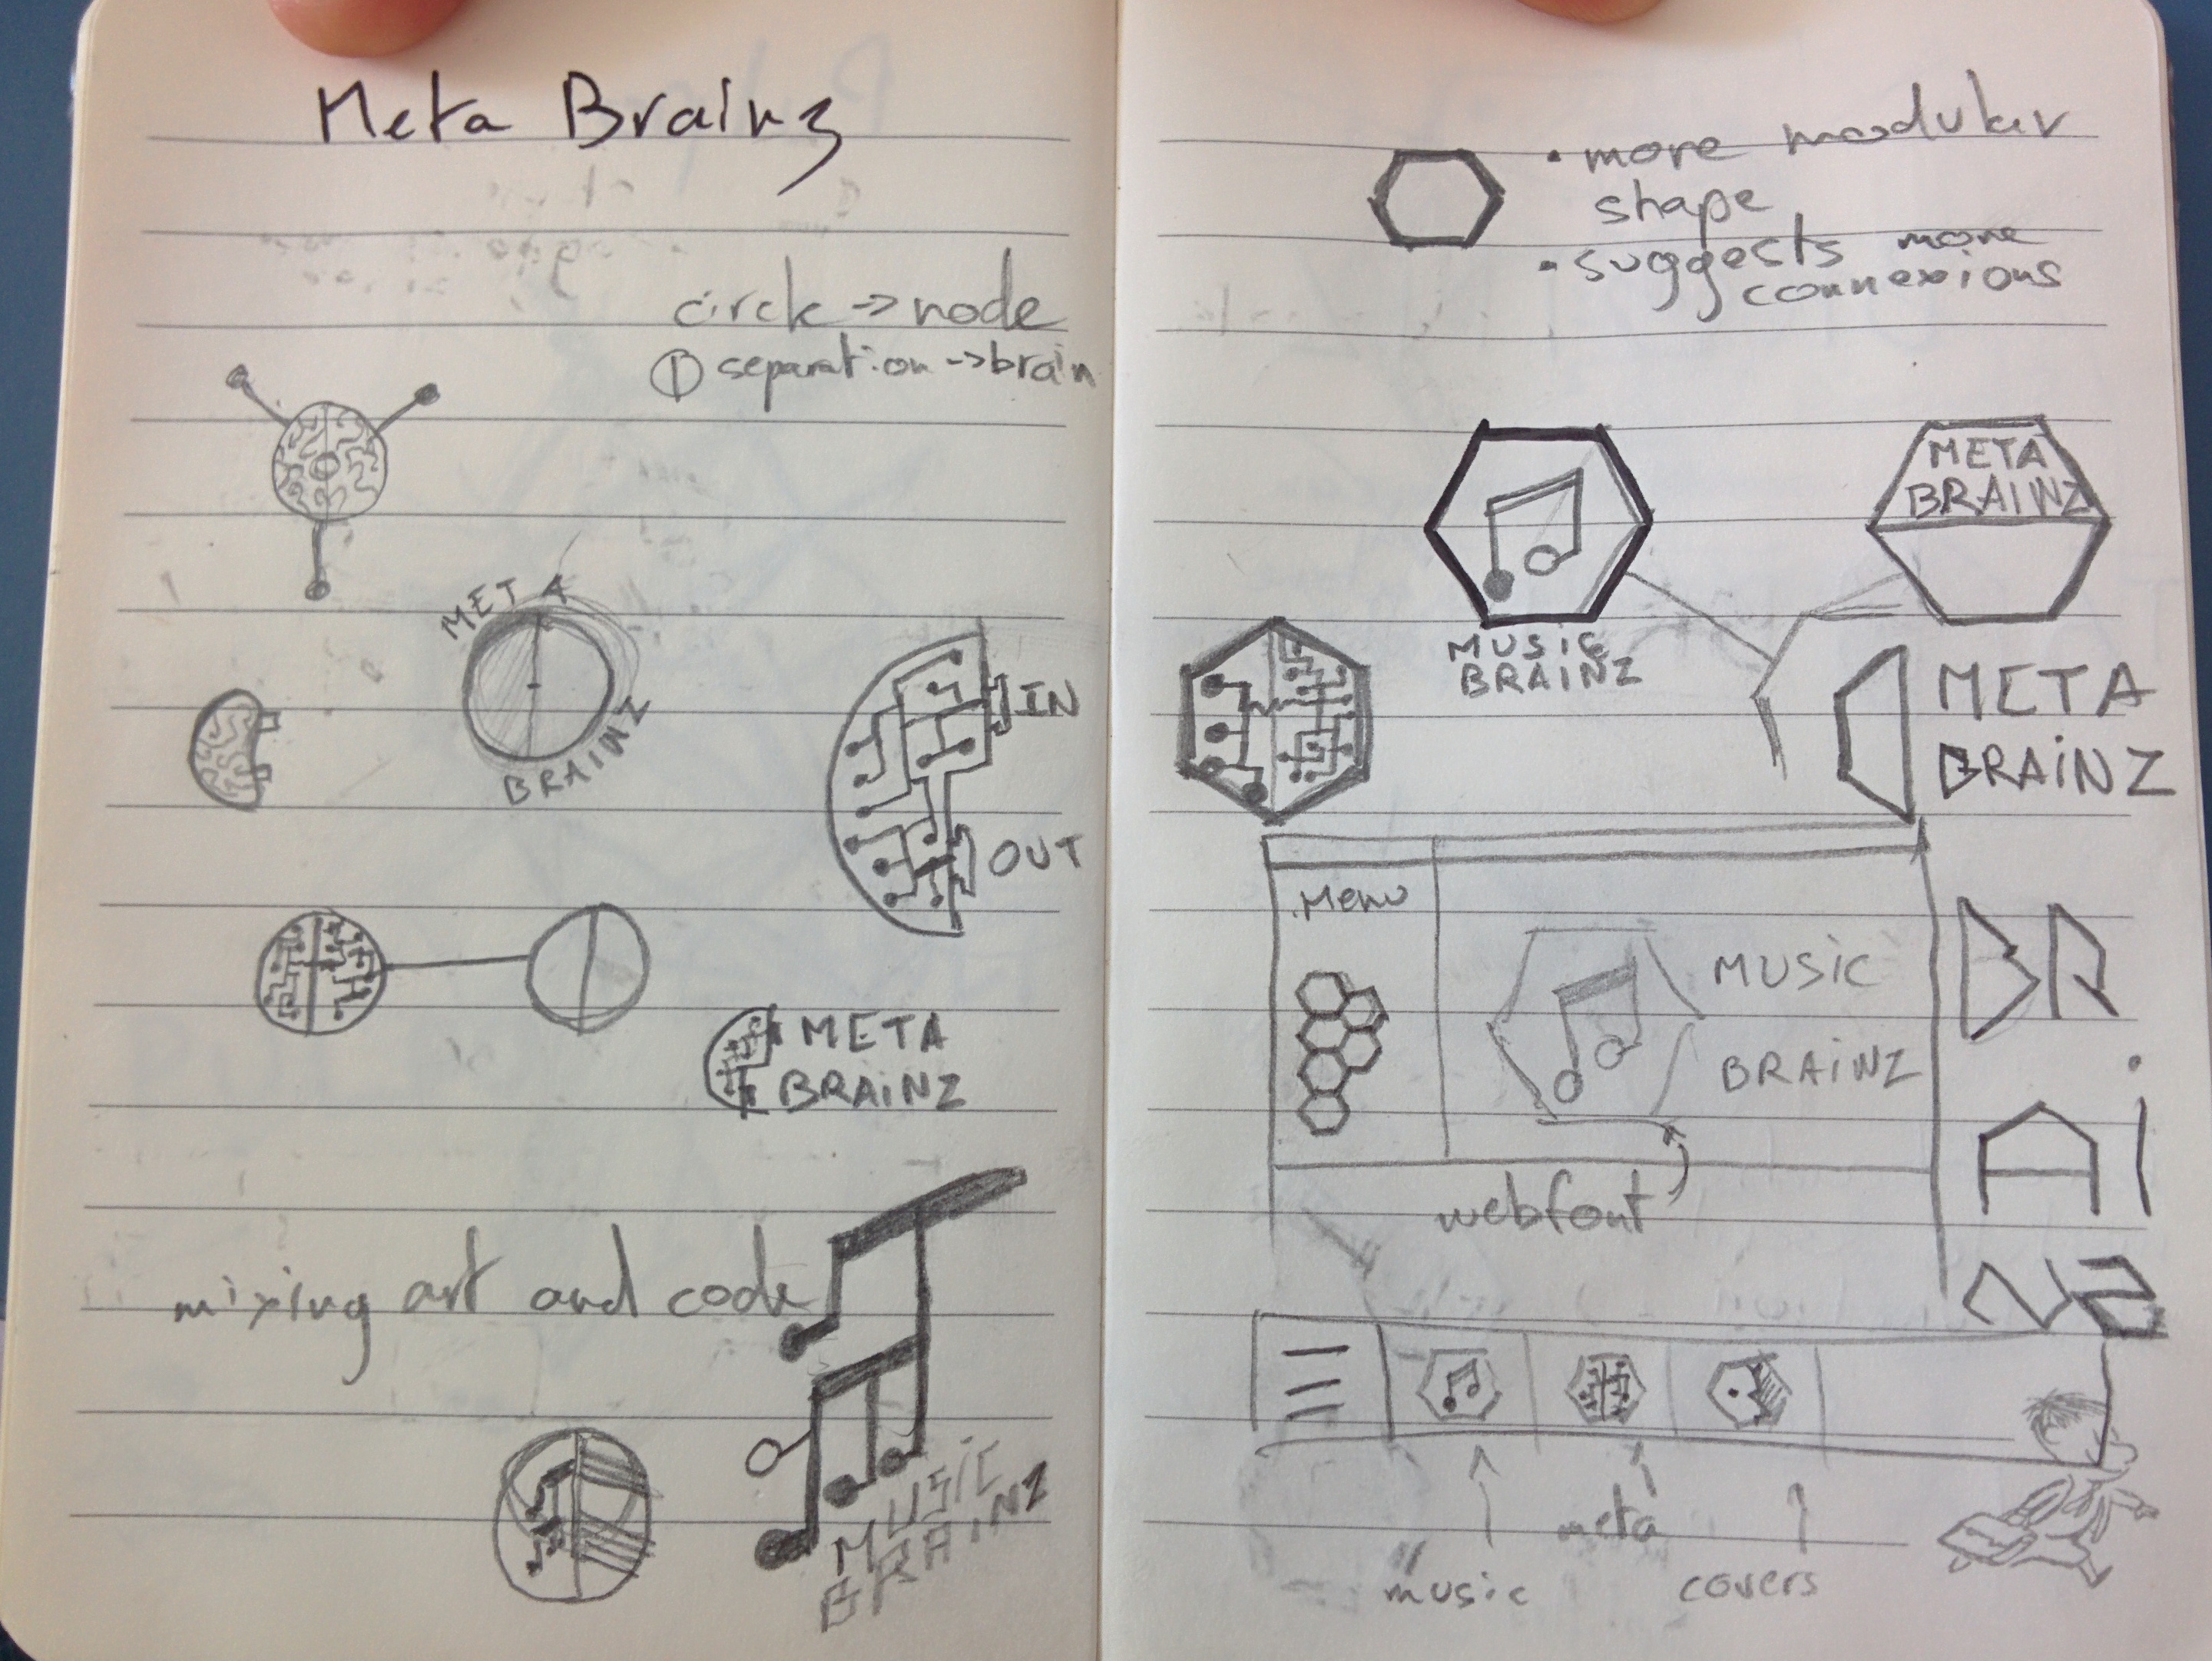 Meta Brainz
circle -> node
separation -> brain
META
BRAINZ
IN
OUT
META
BRAiNZ
mixing art and code
MUSiC
BRAiNZ
• more modular
shape
• suggests more
connexions
META
BRAiNZ
MUSiC
BRAiNZ
META
BRAiNZ
Menu
MUSiC
BRAiNZ
webfont
BR
Ai
NZ
meta
music
covers